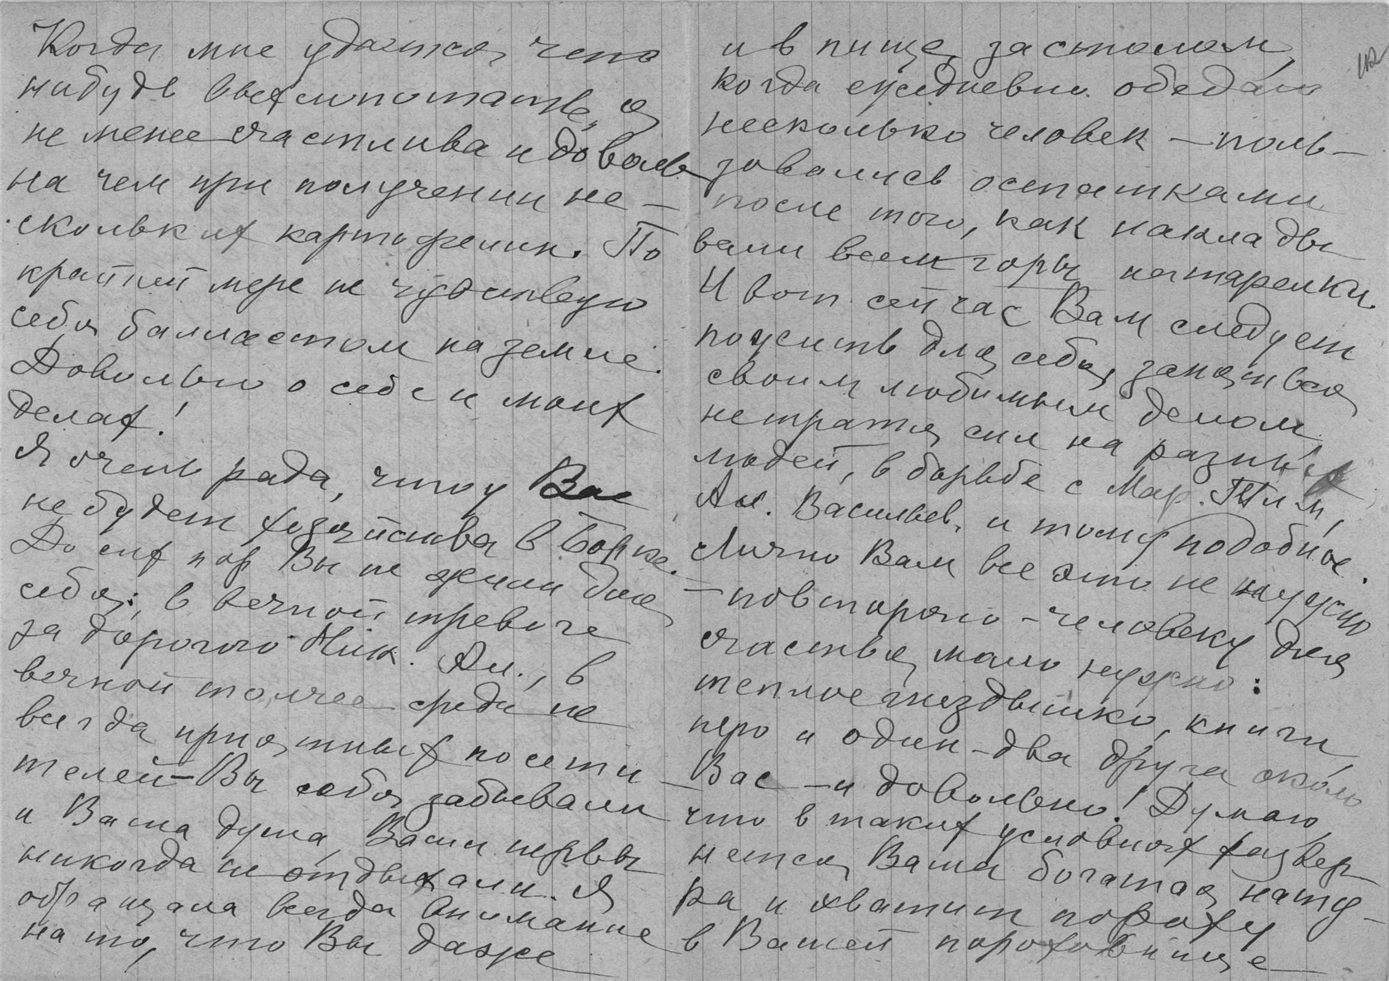 Когда мне удается, что
нибудь
не менее счастлива и доволь
на чем при получении не —
скольких картофелин. По
крайней мере не чувствую
себя балластом на земле.
Довольно о себе и моих
делах!
Я очень рада, что у Вас
не будет хозяйства в Борке.
До сих пор Вы не жили для
себя; в вечной тревоге
за дорогого Ник. Ал., в
вечной толчее среди не
всегда приятных посети —
телей — Вы себя забывали
и Ваша душа, Ваши нервы
никогда не отдыхали. Я
обращала всегда внимание
на то, что Вы даже
и в пище, за столом,
когда ежедневно обедали
несколько человек — поль —
зовались остатками
после того, как наклады
вали всем горы на тарелки.
И вот сейчас Вам следует
пожить для себя, заняться
своим любимым делом,
не тратя сил на разных
людей, в борьбе с Мар.
Ал. Васильев. и тому подобное.
Лично Вам все это не нужно
— повторяю — человеку для
счастья мало нужно:
теплое гнездышко, книги,
перо и один-два друга около
Вас — и довольно! Думаю,
что в таких условиях развер
нется Ваша богатая нату —
ра и хватит пороху
в Вашей пороховнице